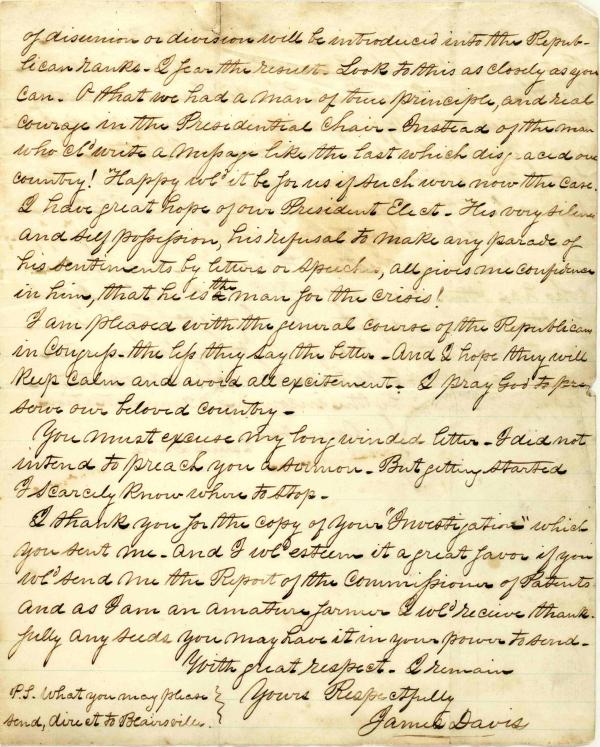 of disunion or division will be introduced into the Repub-
lican ranks - I fear the result - Look to this as closely as you
can - O that we had a man of true principle, and real
courage in the Presidential Chair - Instead of the man
who cl'd write a Message like the last which disgraced our
country! Happy wl'd it be for us if such were now the case.
I have great hope of our President Elect - His very silence
and self possession, his refusal to make any parade of
his sentiments by letters or speeches, all gives me confidence
in him, that he is the man for the crisis!
I am pleased with the general course of the Republicans
in Congress - the less they say the better - And I hope they will
keep calm and avoid all excitement - I pray God to pre-
serve our beloved country -
You must excuse my long winded letter - I did not
intend to preach you a sermon - But getting started
I scarcely know where to stop -
I thank you for the copy of your "Investigation" which
you sent me - and I wl'd esteem it a great favor if you
wl'd send me the Report of the Commissioner of Patents
and as I am an amature farmer I wl'd recieve thank-
fully any seeds you may have it in your power to send -
With great respect - I remain
Yours Respectfully
James Davis
P.S. What you may please
send, direct to Blairsville.